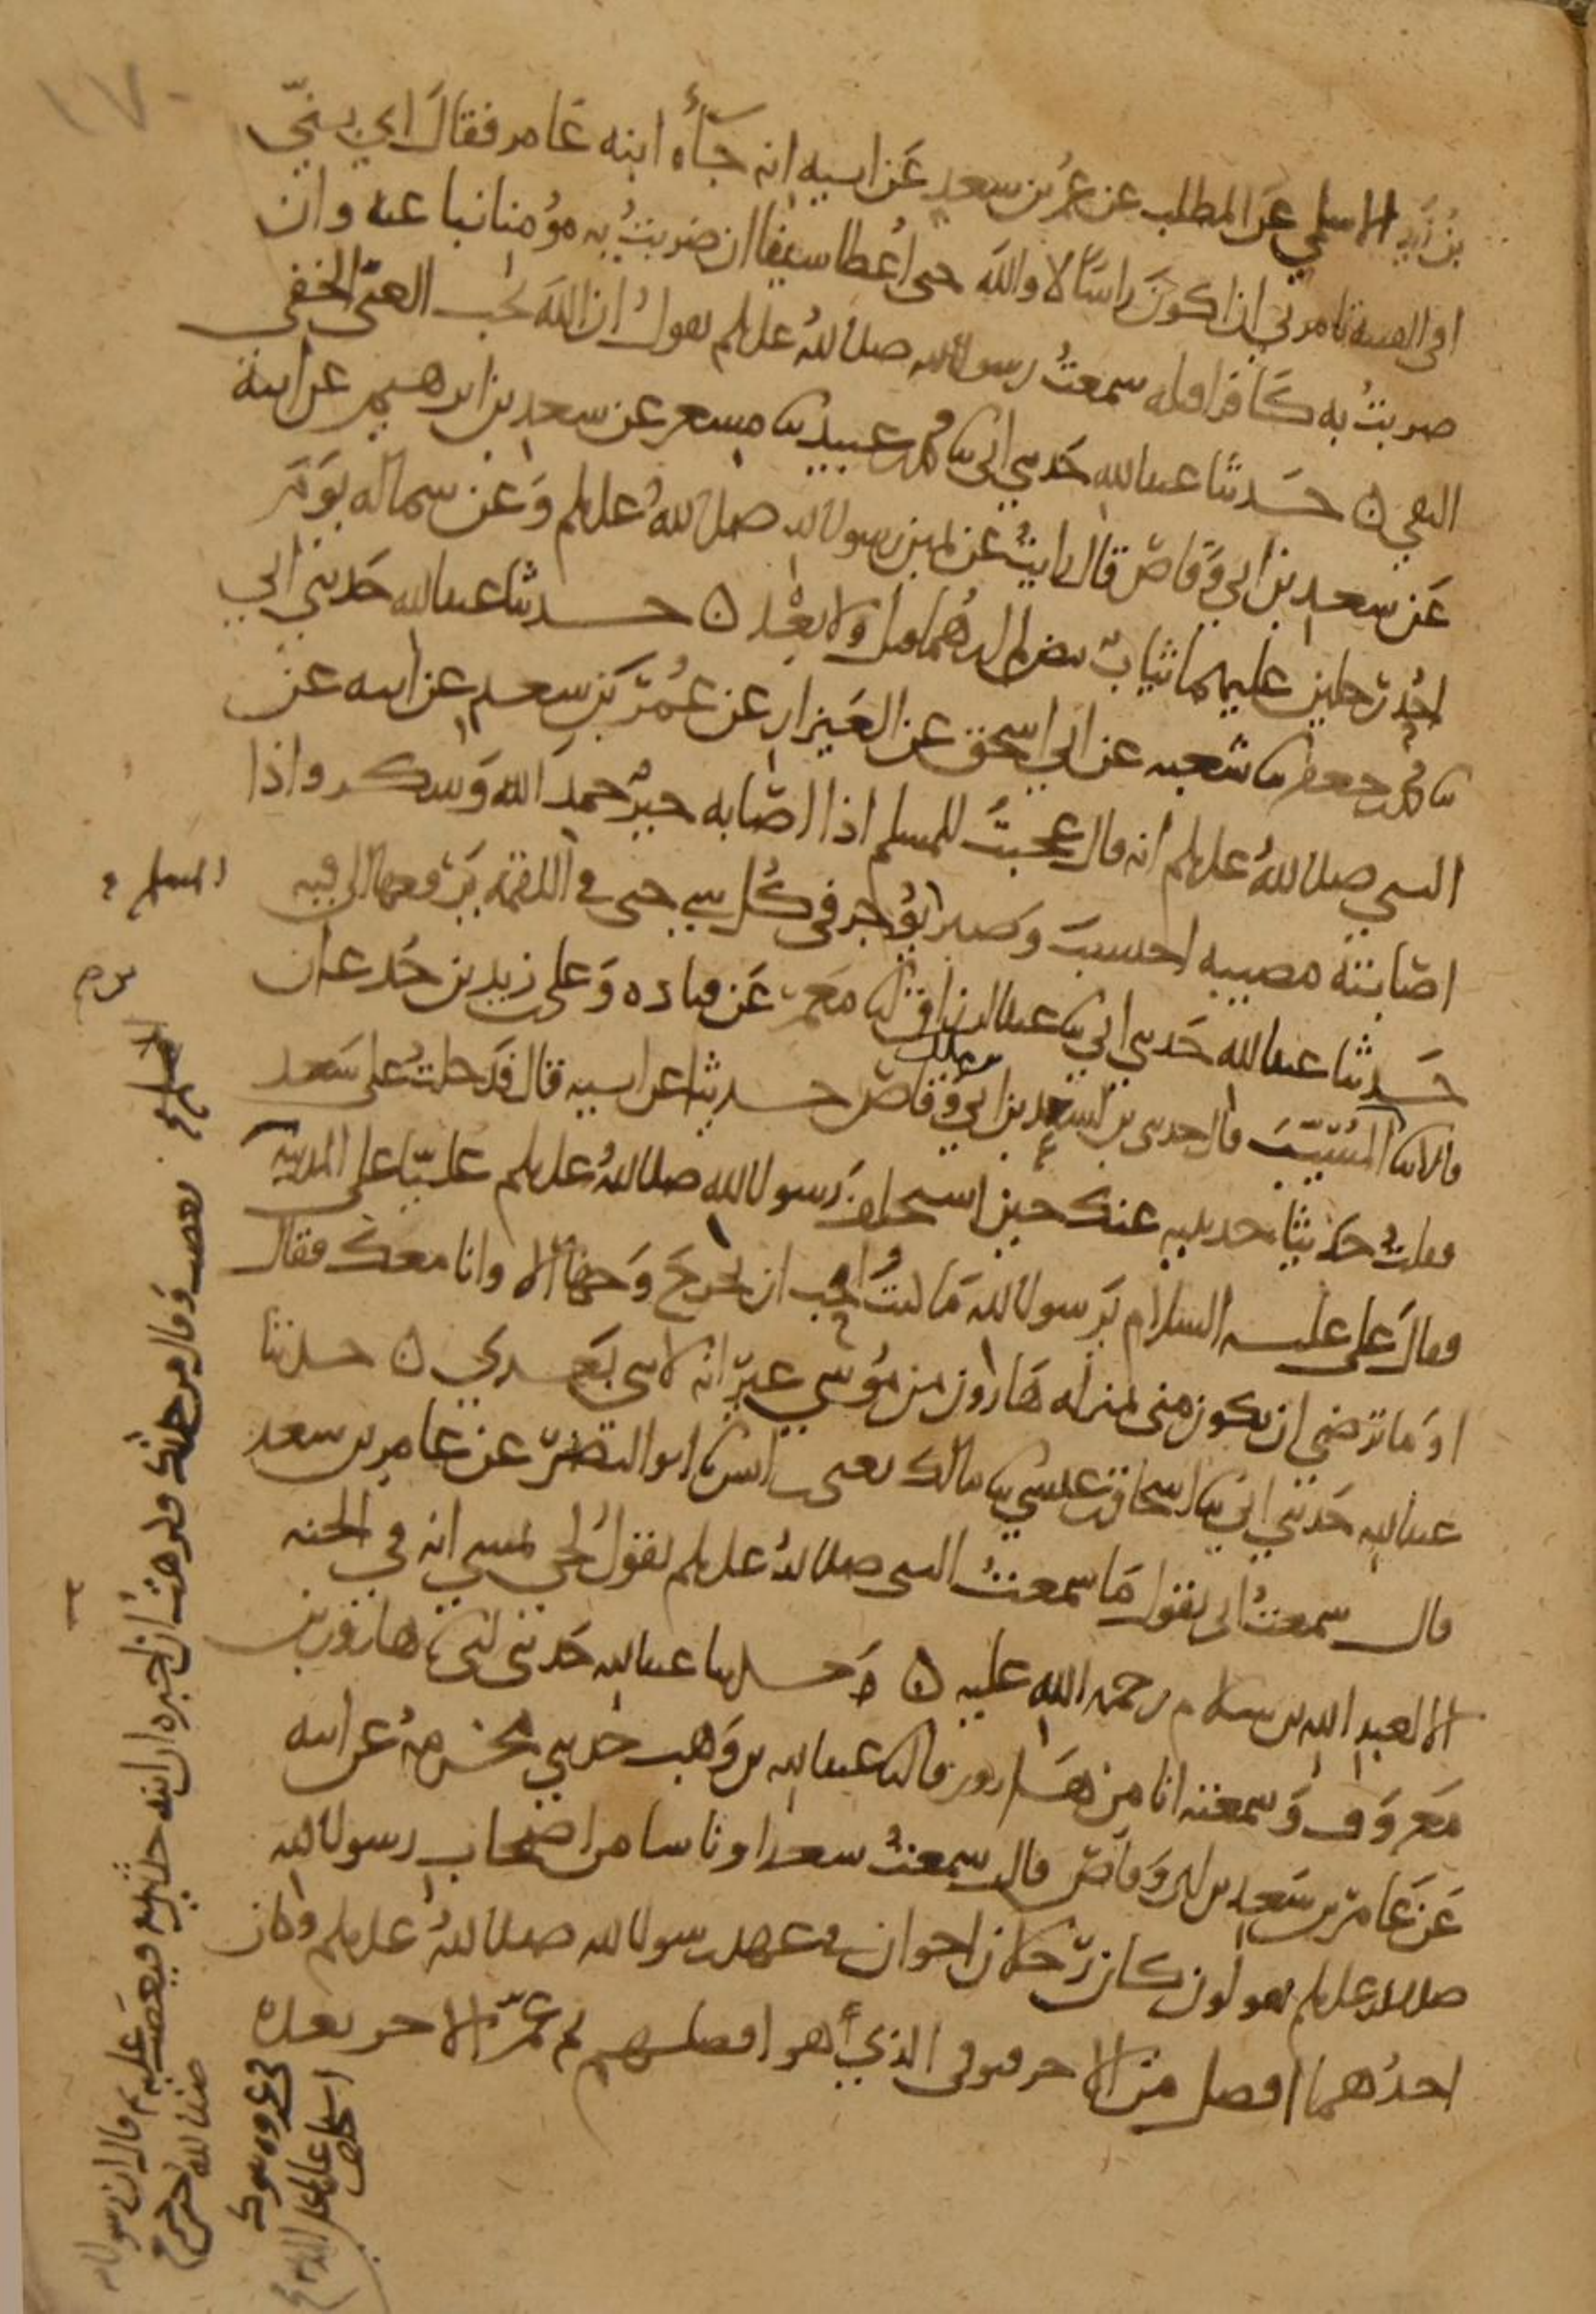 ١٧٠
بن زيد الاسلمي عن المطلب عن عمر بن سعد عن ابيه انه جآءه ابنه عامر فقال اي بنيّ
افي الفتنة تامرني ان اكون راسًا لا والله حتى اُعطا سيفا ان ضربتُ به مؤمنا نبا عنه وان
ضربتُ به كافرا قتله سمعتُ رسول الله صلى اللهُ عليه وسلم يقولُ ان الله يحب الغنيّ الخفي
التقي ٥ حدثنا عبد الله حدثني ابي ثنا محمد بن عبيد ثنا مسعر عن سعد بن ابرهيم عن ابيه
عن سعد بن ابي وقاص قال رايتُ عن يمين رسول الله صلى اللهُ عليه وسلم وعن شماله يوم
احُد رجلين عليهما ثيابٌ بيض لم ارهما قبل ولا بعْدُ ٥ حدثنا عبد الله حدثني ابي
ثنا محمد بن جعفر ثنا شعبه عن ابي اسحق عن العيزار عن عُمر بن سعد عن ابيه عن
النبي صلى اللهُ عليه وسلم انه قال عجبتُ للمسلم اذا اصابه خيرٌ حمد الله وشكر واذا
اصابته مصيبه احتسب وصبر يؤجر في كُل شي حتى في اللقمة يرفعها الى فيه
حدثنا عبد الله حدثني ابي ثنا عبد الرزاق ثنا معمر عن قتاده وعلي بن زيد بن جدعان
قالا ثنا ابن المسيّب قال حدثني ابن لسعد بن ابي وقاص حديثا عن ابيه قال فدخلتُ على سعد
فقلتُ حديثا حدثنيه عنك حين استخلف رسول الله صلى اللهُ عليه وسلم عليّا على المدينه
فقال علي عليه السلام يرسول الله ما كنتُ اُحب ان تخرج وجها الا وانا معك فقال
او ما ترضى ان تكون مني بمنزله هارون من موسي غير انه لا نبي بعدي ٥ حدثنا
عبد الله حدثني ابي ثنا اسحاق بن عيسي ثنا مالك يعني ابن انس ثنا ابو النضر عن عامر بن سعد
قال سمعتُ ابي يقول ما سمعتُ النبي صلى اللهُ عليه وسلم يقولُ لحي يمشي انه في الجنه
الا لعبد الله بن سلام رحمه الله عليه ٥ وحدثنا عبد الله حدثني ابي ثنا هارون بن
معروف وسمعته انا من هارون قال ثنا عبد الله بن وهب حدثني مخرمه عن ابيه
عن عامر بن سعد بن ابي وقاص قال سمعتُ سعدا وناسا من اصحاب رسول الله
صلى الله عليه وسلم يقولون كان رجلان اخوان في عهد رسول الله صلى اللهُ عليه وسلم وكان
احدُهما افضل من الاخر فتوفي الذي هو افضلهم ثم عمّر الاخر بعده
المسلم
فغضب وقال من حدثك فكرهتُ ان اخبره ان ابنه حدثنيه فيغضب عليه ثم قال ان رسول الله